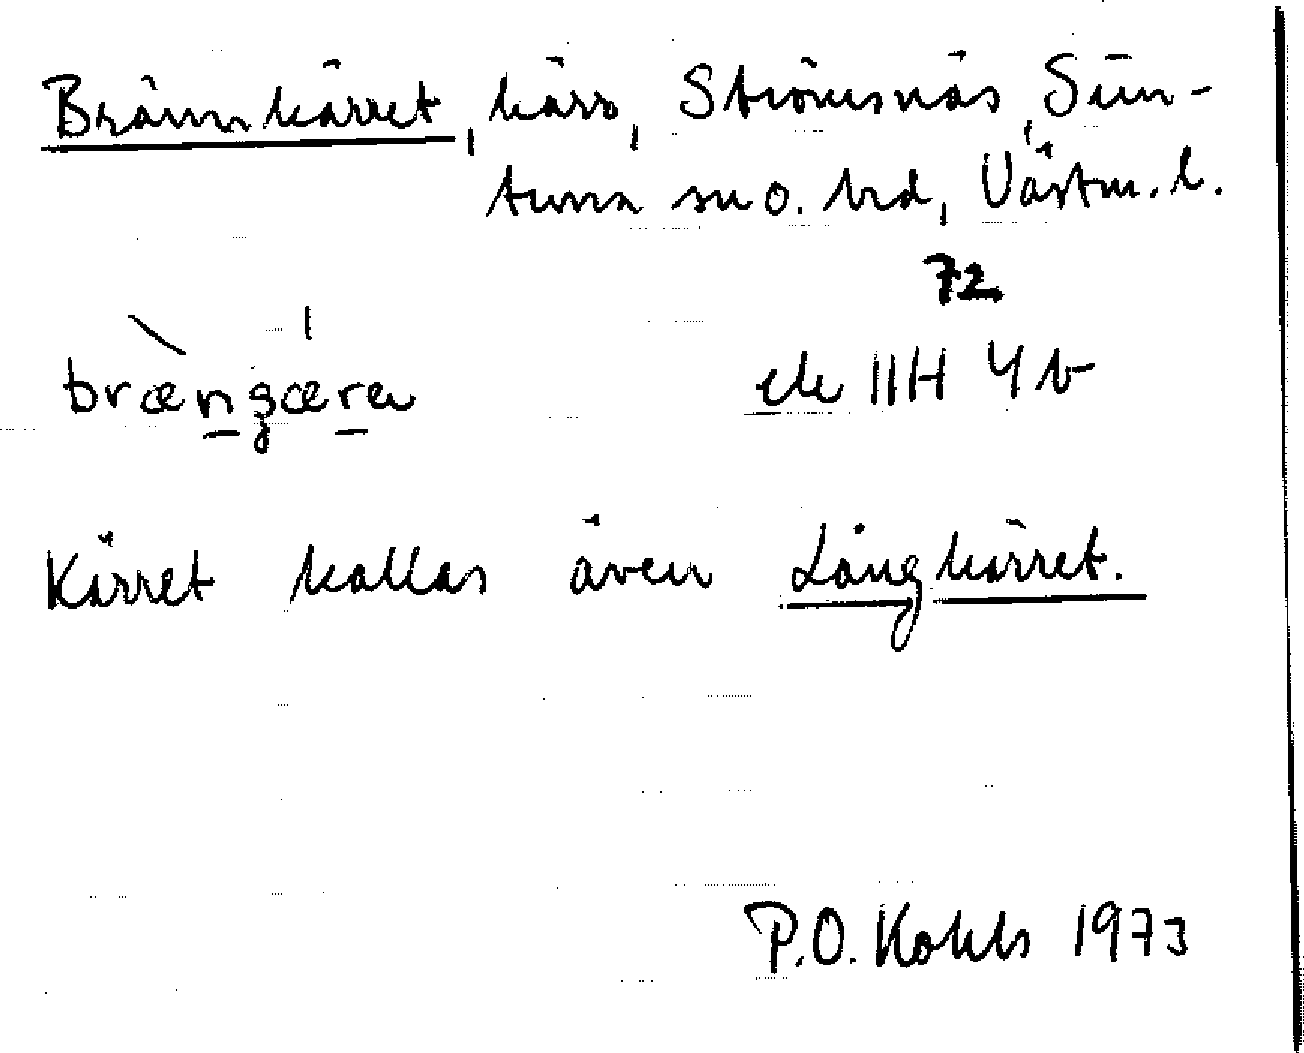 Brännkärret, kärr, Strömsnäs, Sim-
tuna sn o. hrd, Västm. l.
72
brængæra ek 11H 4 b
Kärret kallas även Långkärret.
P.O. Kohls 1973